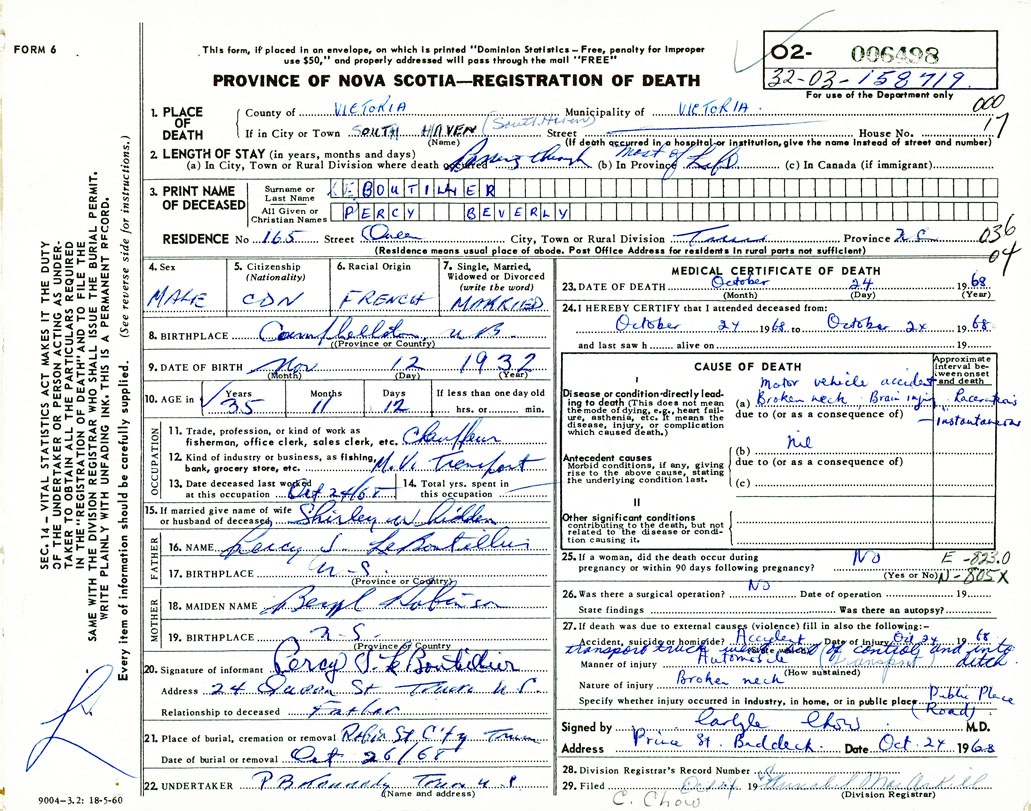 FORM 6
This form, if placed in an envelope, on which is printed "Dominion Statistics – Free, penalty for improper
use $50," and properly addressed will pass through the mail "FREE"
PROVINCE OF NOVA SCOTIA—REGISTRATION OF DEATH
O2- 006498
32-03-158719.
For use of the Department only
000
17
1. PLACE OF DEATH
County of VICTORIA Municipality of VICTORIA.
If in City or Town SOUTH HAVEN (South Haven) Street House No.
(Name) (If death occurred in a hospital or institution, give the name instead of street and number)
2. LENGTH OF STAY (in years, months and days)
(a) In City, Town or Rural Division where death occurred Passing through (b) In Province most of Life (c) In Canada (if immigrant)
3. PRINT NAME OF DECEASED
Surname or Last Name LEBOUTILIER
All Given or Christian Names PERCY BEVERLY
RESIDENCE No 165 Street Queen City, Town or Rural Division Truro Province N.S.
036
04
(Residence means usual place of abode. Post Office Address for residents in rural parts not sufficient)
4. Sex MALE
5. Citizenship (Nationality) CDN
6. Racial Origin FRENCH
7. Single, Married, Widowed or Divorced (write the word) MARRIED
8. BIRTHPLACE Campbellton, N B
(Province or Country)
9. DATE OF BIRTH Nov 12 1932
(Month) (Day) (Year)
10. AGE in Years 35 Months 11 Days 12 If less than one day old hrs. or min.
OCCUPATION
11. Trade, profession, or kind of work as fisherman, office clerk, sales clerk, etc. Chauffeur
12. Kind of industry or business, as fishing, bank, grocery store, etc. M.V. Transport
13. Date deceased last worked at this occupation Oct 24/68
14. Total yrs. spent in this occupation
15. If married give name of wife or husband of deceased Shirley
FATHER
16. NAME Percy J. LeBoutillier
17. BIRTHPLACE N-S.
(Province or Country)
MOTHER
18. MAIDEN NAME Beryl Robinson
19. BIRTHPLACE N-S.
(Province or Country
20. Signature of informant Percy J. LeBoutillier
Address 24 St Truro N.S.
Relationship to deceased Father
21. Place of burial, cremation or removal Robie St. City Truro
Date of burial or removal Oct 26/68
22. UNDERTAKER Truro N.S
(Name and address)
9004-3.2: 18-5-60
MEDICAL CERTIFICATE OF DEATH
23. DATE OF DEATH October 24 1968
(Month) (Day) (Year)
24. I HEREBY CERTIFY that I attended deceased from:
October 24 1968. to October 24 1968.
and last saw h alive on 19
CAUSE OF DEATH
Approximate interval between onset and death
I
Disease or condition directly leading to death (This does not mean the mode of dying, e.g., heart failure, asthenia, etc. It means the disease, injury, or complication which caused death.)
Motor vehicle accident
(a) Broken neck - Brain injury - Lacerations
- instantaneous
due to (or as a consequence of)
nil
Antecedent causes
Morbid conditions, if any, giving rise to the above cause, stating the underlying condition last.
(b)
due to (or as a consequence of)
(c)
II
Other significant conditions
contributing to the death, but not related to the disease or condition causing it.
25. If a woman, did the death occur during pregnancy or within 90 days following pregnancy? No
(Yes or No)
E-823.0
N-805X
26. Was there a surgical operation? No Date of operation 19
State findings Was there an autopsy?
27. If death was due to external causes (violence) fill in also the following:-
Accident, suicide or homicide? Accident Date of injury Oct 24 1968
transport truck went out of control and into ditch
Manner of injury Automobile (Transport)
(How sustained)
Nature of injury Broken neck
Specify whether injury occurred in industry, in home, or in public place Public Place
(Road).
Signed by Carlyle Chow M.D.
Address Price St. Baddeck. Date Oct. 24 1968
28. Division Registrar's Record Number
29. Filed 19
(Division Registrar)
C. Chow
SEC. 14 – VITAL STATISTICS ACT MAKES IT THE DUTY
OF THE UNDERTAKER OR PERSON ACTING AS UNDER-
TAKER TO OBTAIN ALL THE PARTICULARS REQUIRED
IN THE "REGISTRATION OF DEATH" AND TO FILE THE
SAME WITH THE DIVISION REGISTRAR WHO SHALL ISSUE THE BURIAL PERMIT.
WRITE PLAINLY WITH UNFADING INK. THIS IS A PERMANENT RECORD.
Every item of information should be carefully supplied. (See reverse side for instructions.)